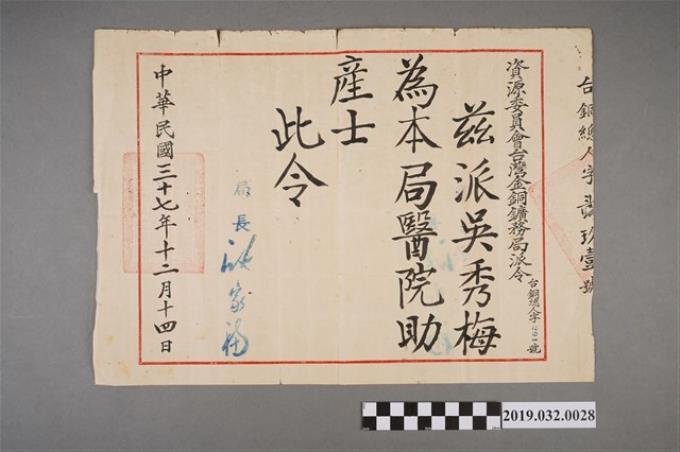 台銅總人字 玖壹號
資源委員會台灣金銅鑛務局派令
台銅總人字291號
茲派吳秀梅
為本局醫院助
產士
此令
局長
中華民國三十七年十二月十四日
2019.032.0028